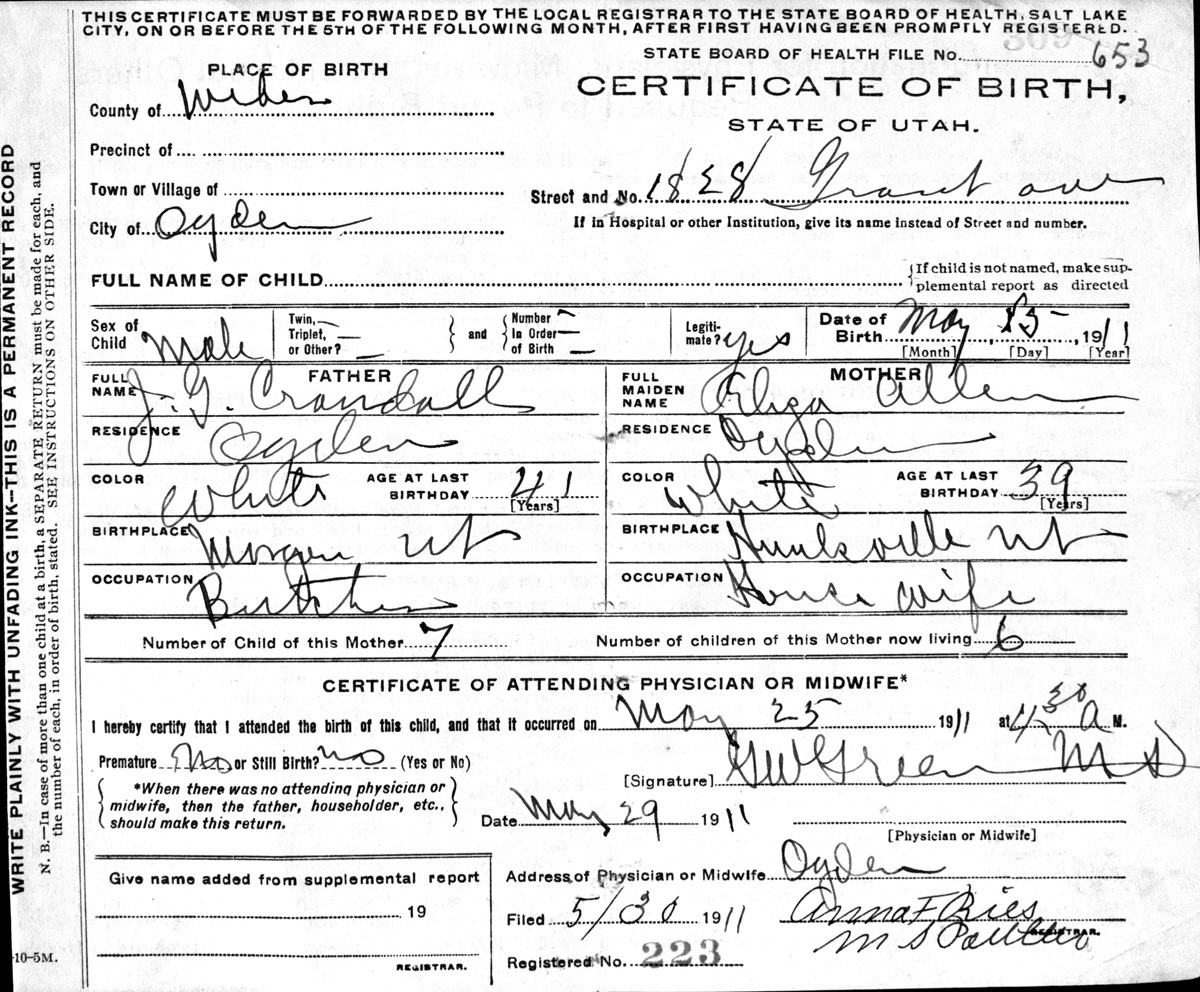 THIS CERTIFICATE MUST BE FORWARDED BY THE LOCAL REGISTRAR TO THE STATE BOARD OF HEALTH, SALT LAKE
CITY, ON OR BEFORE THE 5TH OF THE FOLLOWING MONTH, AFTER FIRST HAVING BEEN PROMPTLY REGISTERED.
STATE BOARD OF HEALTH FILE No. 653
PLACE OF BIRTH
CERTIFICATE OF BIRTH,
STATE OF UTAH.
County of Weber
Precinct of
Town or Village of
Street and No. 1828 Grant ave
City of Ogden
If in Hospital or other Institution, give its name instead of Street and number.
FULL NAME OF CHILD
{If child is not named, make sup-
plemental report as directed
Sex of Child Male
Twin, Triplet, or Other? —
and
Number In Order of Birth —
Legiti-mate? yes
Date of Birth May, 25, 1911
[Month] [Day] [Year]
FATHER
FULL NAME J. G. Crandall
RESIDENCE Ogden
COLOR White AGE AT LAST BIRTHDAY 41 [Years]
BIRTHPLACE Morgan Ut
OCCUPATION Butcher
MOTHER
FULL MAIDEN NAME Eliza Allen
RESIDENCE Ogden
COLOR White AGE AT LAST BIRTHDAY 39 [Years]
BIRTHPLACE Huntsville Ut
OCCUPATION House wife
Number of Child of this Mother 7 Number of children of this Mother now living 6
CERTIFICATE OF ATTENDING PHYSICIAN OR MIDWIFE*
I hereby certify that I attended the birth of this child, and that it occurred on May 25 1911 at 4:30 A M.
Premature No or Still Birth? no (Yes or No)
[Signature] GW Green MD
*When there was no attending physician or
midwife, then the father, householder, etc.,
should make this return.
Date May 29 1911
[Physician or Midwife]
Give name added from supplemental report
19
REGISTRAR.
Address of Physician or Midwife Ogden
Filed 5/30 1911 Anna F Ries
M S
REGISTRAR.
Registered No. 223
-10-5M.
WRITE PLAINLY WITH UNFADING INK—THIS IS A PERMANENT RECORD
N. B.—In case of more than one child at a birth, a SEPARATE RETURN must be made for each, and
the number of each, in order of birth, stated. SEE INSTRUCTIONS ON OTHER SIDE.